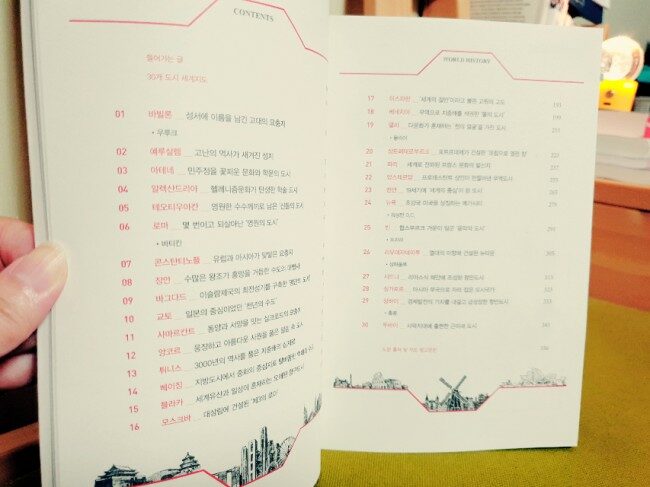 CONTENTS
들어가는 글
30개 도시 세계지도
01 바빌론 __ 성서에 이름을 남긴 고대의 요충지
• 우루크
02 예루살렘 __ 고난의 역사가 새겨진 성지
03 아테네 __ 민주정을 꽃피운 문화와 학문의 도시
04 알렉산드리아 __ 헬레니즘문화가 탄생한 학술 도시
05 테오티우아칸 __ 영원한 수수께끼로 남은 신들의 도시
06 로마 __ 몇 번이고 되살아난 '영원의 도시'
• 바티칸
07 콘스탄티노플 __ 유럽과 아시아가 맞닿은 요충지
08 장안 __ 수많은 왕조가 흥망을 거듭한 수도의 대명사
09 바그다드 __ 이슬람제국의 최전성기를 구축한 '원형의 도시'
10 교토 __ 일본의 중심이었던 '천년의 수도'
11 사마르칸트 __ 동양과 서양을 잇는 실크로드의
12 앙코르 __ 웅장하고 아름다운 사원을 품은
13 튀니스 __ 3000년의 역사를 품은 지중해의
14 베이징 __ 지방도시에서 중화의 중심지로
15 믈라카 __ 세계유산과 일상이 혼재하는
16 모스크바 __ 대삼림에 건설된 '제3의 로마'
WORLD HISTORY
17 이스파한 __ '세계의 절반'이라고 불린 고원의 고도 193
18 베네치아 __ 무역으로 지중해를 석권한 '물의 도시'
19 델리 __ 다문화가 혼재하는 '천의 얼굴'을 가진 도시 211
• 뭄바이
20 상트페테르부르크 __ 표트르대제가 건설한 '유럽으로 열린 창'
21 파리 __ 세계로 전파된 프랑스 문화의 발신지
22 암스테르담 __ 프로테스탄트 상인이 만들어낸 무역도시
23 런던 __ 19세기에 '세계의 중심'이 된 도시
24 뉴욕 __ 초강국 미국을 상징하는 메가시티
• 워싱턴 D.C.
25 빈 __ 합스부르크 가문이 일군 '음악의 도시'
26 리우데자네이루 __ 열대의 이향에 건설된 뉴타운 305
27 시드니 __ 리아스식 해안에 조성된 항만도시
28 싱가포르 __ 아시아 무역으로 자리 잡은 도시국가
29 상하이 __ 경제발전의 기치를 내걸고 급성장한 항만도시
• 홍콩
30 두바이 __ 사막지대에 출현한 근미래 도시